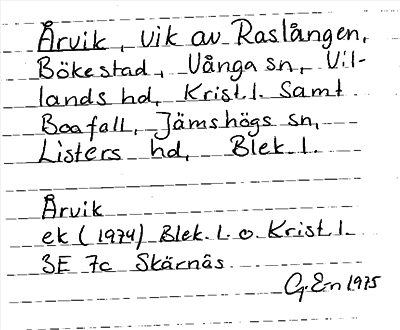 Årvik, vik av Raslången,
Bökestad, Vånga sn, Vil-
lands hd, Krist.l. Samt
Boafall, Jämshögs sn,
Listers hd, Blek. l.
Årvik
ek (1974) Blek. l. o. Krist. l.
3E 7c Skärnäs
G. En 1975